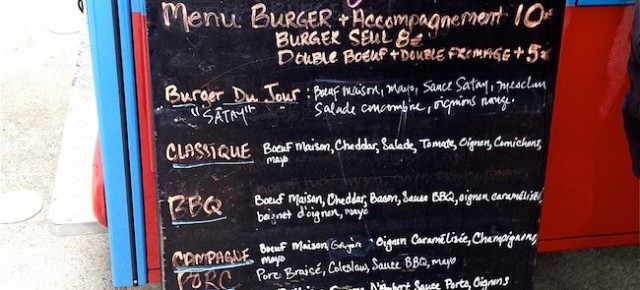 Menu BURGER + Accompagnement 10€
BURGER SEUL 8€
DOUBLE BOEUF + DOUBLE FROMAGE + 5€
Burger Du Jour : Boeuf Maison, Mayo, Sauce Satay, mesclun
"SATAY" Salade concombre, oignons rouge.
CLASSIQUE Boeuf Maison, Cheddar, Salade, Tomate, Oignon, Cornichons,
mayo
BBQ Boeuf Maison, Cheddar, Bacon, Sauce BBQ, oignon caramélisé
beignet d'oignon, mayo
CAMPAGNE Boeuf Maison, Oignon Caramélisée, Champignons,
mayo
PORC Porc Braisé, Coleslaw, Sauce BBQ, mayo
D'Ambert Sauce Porto, Oignons